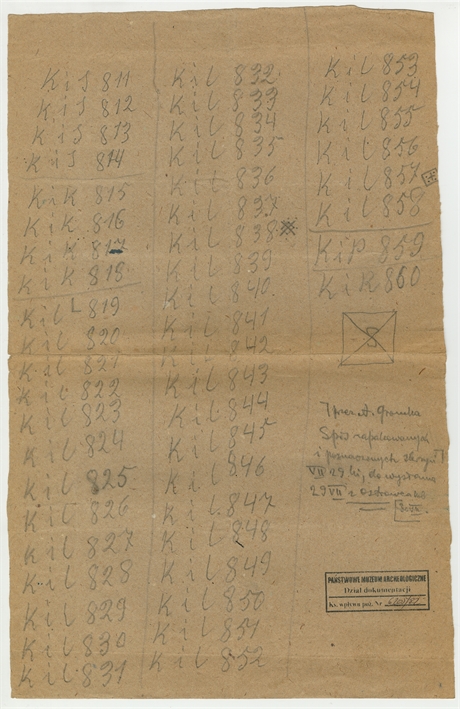 KiJ 811
KiJ 812
KiJ 813
KiJ 814
KiK 815
KiK 816
KiK 817
KiK 818
KiL 819
KiL 820
KiL 821
KiL 822
KiL 823
KiL 824
KiL 825
KiL 826
KiL 827
KiL 828
KiL 829
KiL 830
KiL 831
KiL 832
KiL 833
KiL 834
KiL 835
KiL 836
KiL 837
KiL 838
KiL 839
KiL 840
KiL 841
KiL 842
KiL 843
KiL 844
KiL 845
KiL 846
KiL 847
KiL 848
KiL 849
KiL 850
KiL 851
KiL 852
KiL 853
KiL 854
KiL 855
KiL 856
KiL 857
KiL 858
KiP 859
KiR 860
8
Spis zapakowanych
i
VII 29
29 VII z
PAŃSTWOWE MUZEUM ARCHEOLOGICZNE
Dział dokumentacji
Ks. wpływu poz. Nr